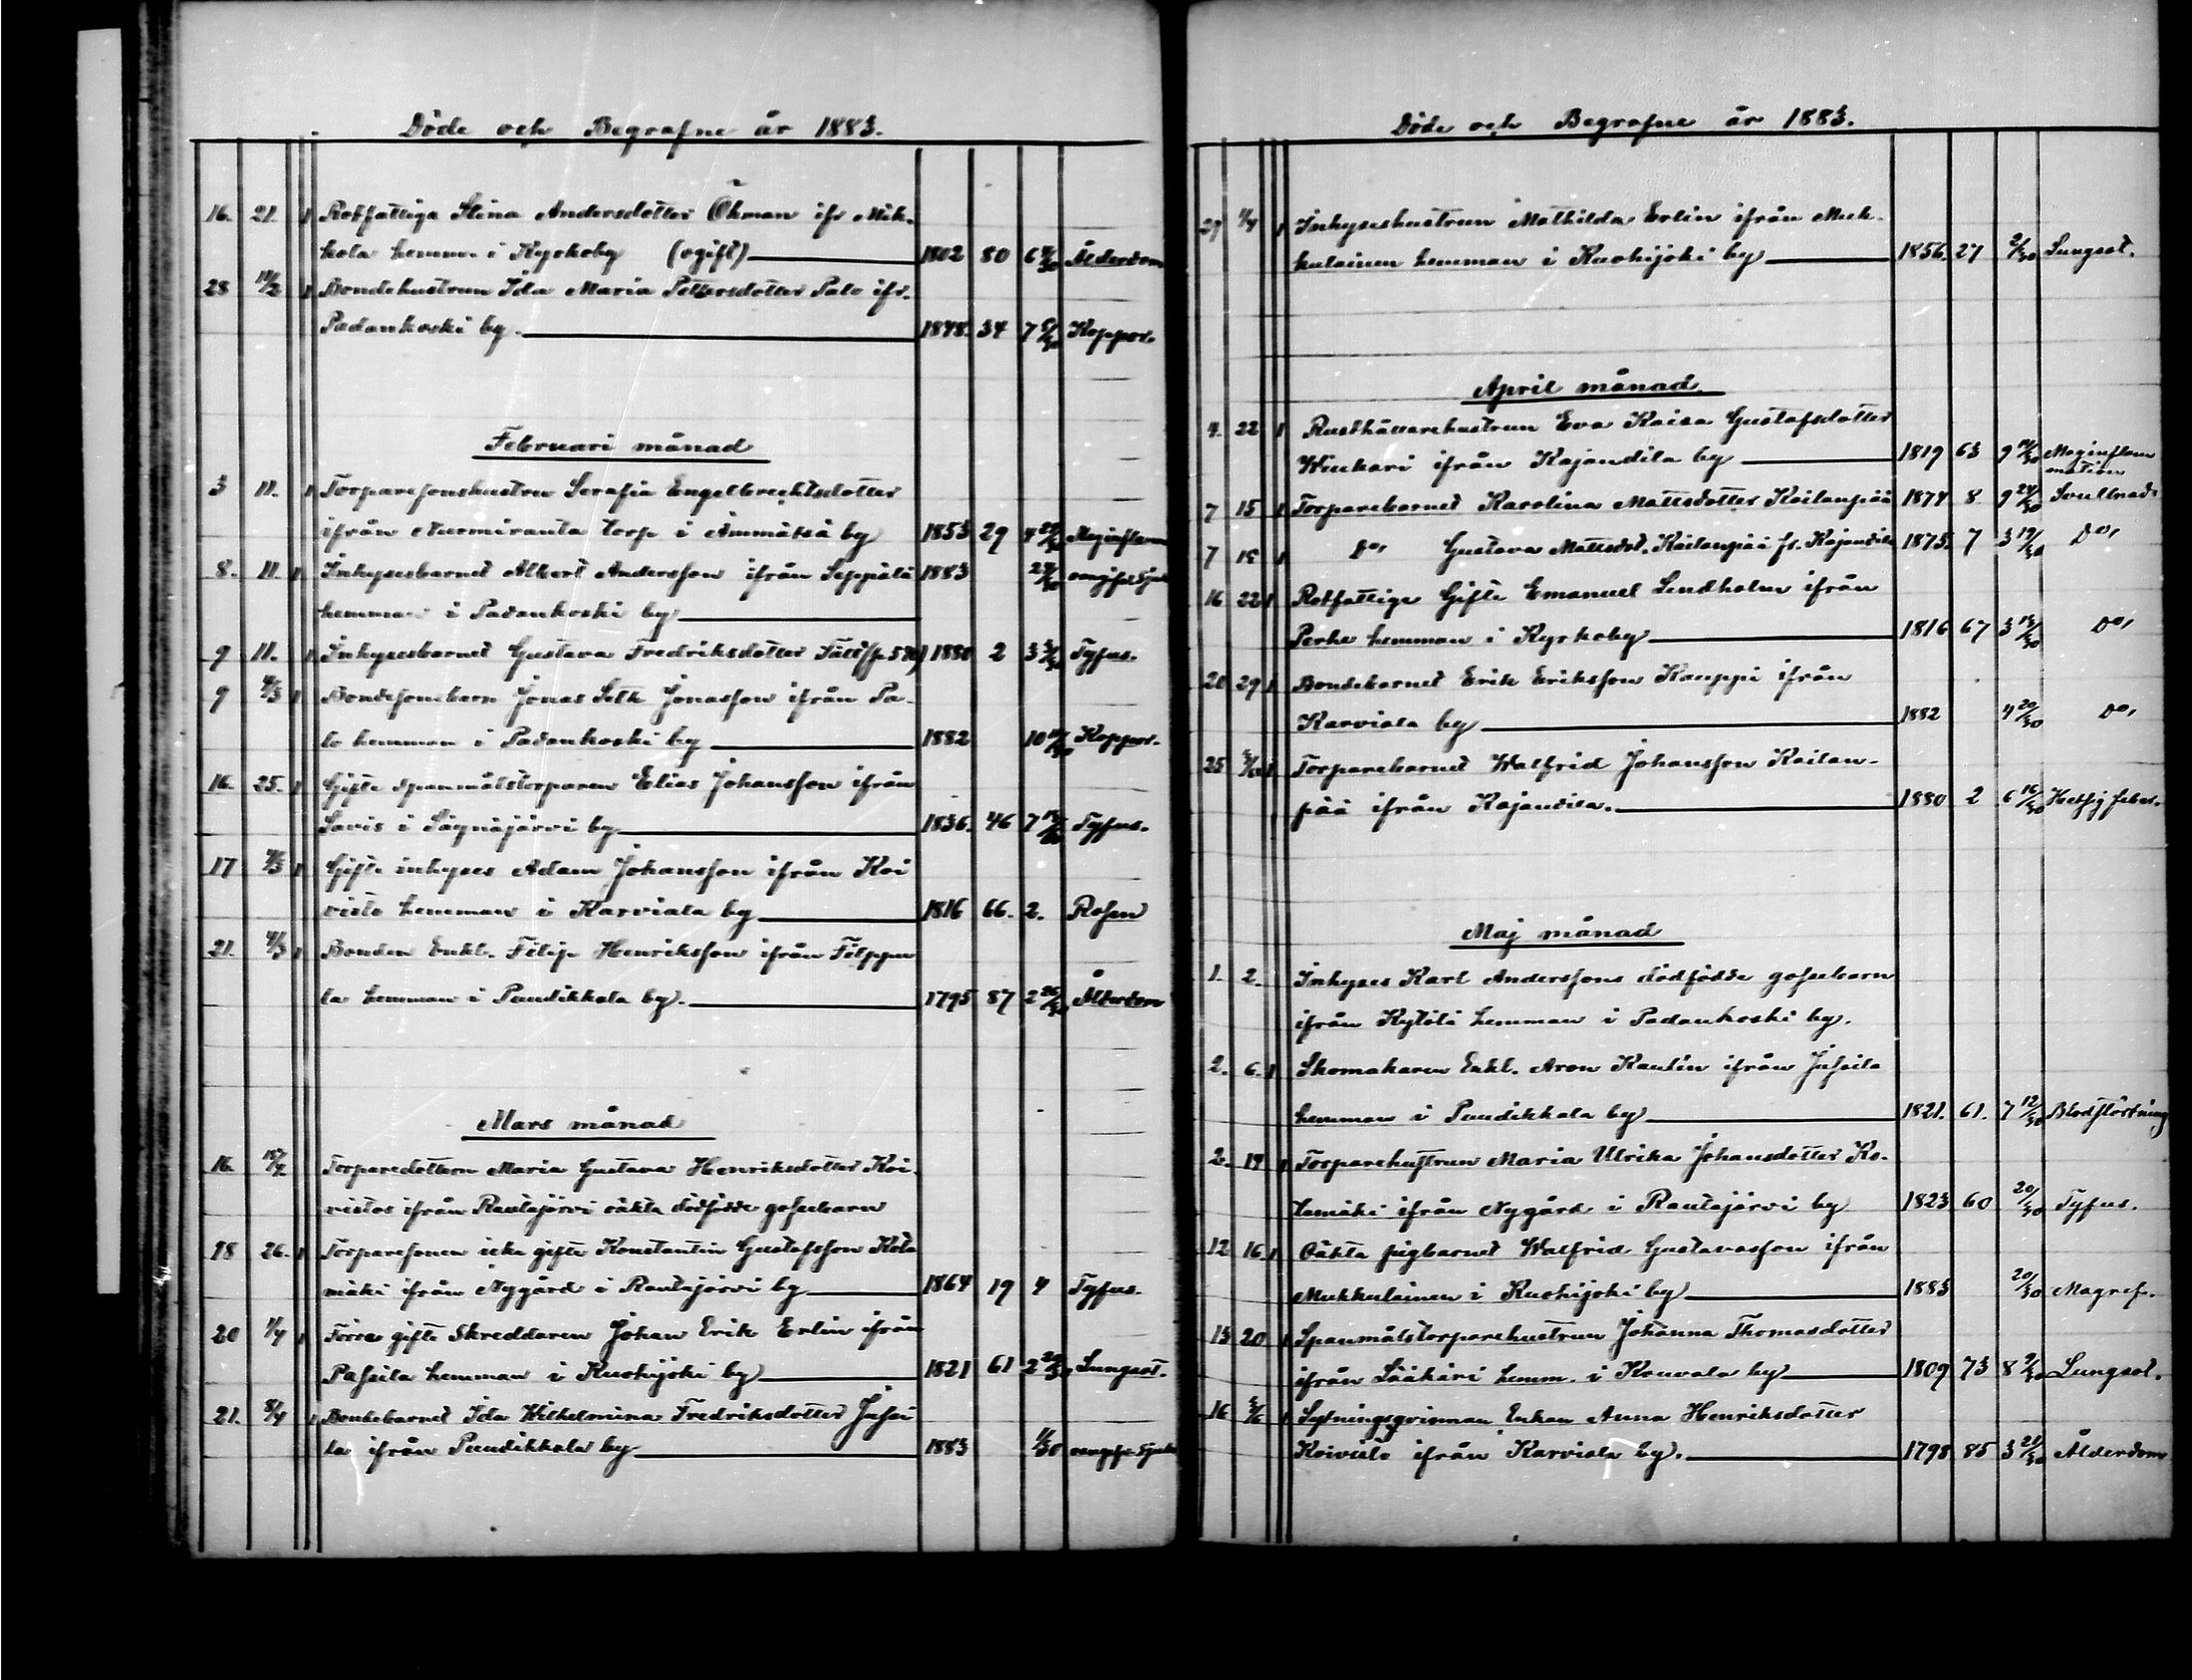 Döde och Begrafne år 1883.
16. 21. 1 Rotfattiga Stina Andersdotter Öhman ifr Mik-
kola hemman i Kyrkoby (ogift) 1802 80 6 Ålderdom
28 11/2 1 Bondehustrun Ida Maria Pettersdotter Palo ifr.
Padankoski by. 1848. 34 7 Koppor.
Februari månad
3 11. 1 Torparesonshustru Serafia Engelbrechtsdotter
ifrån Nurmiranta torp i Ämmätsä by 1853 29 4 Maginflam
8. 11. 1 Inhysesbarnet Albert Andersson ifrån Seppälä 1883
hemman i Padankoski by
9 11. 1 Inhysesbarnet Gustava Fredriksdotter 1880 2 3 Tyfus.
9 4/3 1 Bondesonsbarn Jonas Seth Jonasson ifrån Pa-
lo hemman i Padankoski by 1882 10 Koppor.
16. 25. 1 Gifte Spanmålstorparen Elias Johansson ifrån
Savis i Sägnäjärvi by 1836. 46 7 Tyfus.
17 4/3 1 Gifte inhyses Adam Johansson ifrån Koi
visto hemman i Karviala by 1816 66. 2. Rosen
21. 4/3 1 Bonden Enkl. Filip Henriksson ifrån Filppu
la hemman i Puudikkala by. 1795 87 2 26/30 Ålderdom
Mars månad
16. Torparedottern Maria Gustava Henriksdotter Koi-
vistos ifrån Rautajärvi oäkta dödfödde gossebarn
18 26. 1 Torparesonen icke gifte Konstantin Gustafsson Kota
mäki ifrån Nygård i Rautajärvi by 1864 19 4 Tyfus.
20 1/4 1 Förre gifte Skreddaren Johan Erik Erlin ifrån
Passila hemman i Kuohijoki by 1821 61 2 Lungsot.
21. 8/4 1 Bondebarnet Ida Wilhelmina Fredriksdotter Jussi
la ifrån Puudikkala by 1883
Döde och Begrafne år 1883.
29 1/4 1 Inhyseshustrun Mathilda Erlin ifrån Muk-
kulainen hemman i Kuohijoki by 1856. 27 2/30 Lungsot.
April månad
4. 22 1 Rusthållarehustrun Eva Kaisa Gustafsdotter
Winkari ifrån Kajandila by 1819 63 9 Maginflam
mation
7 15 1 Torparebarnet Karolina Mattsdotter Kailanpää 1874 8 9 24/30 Svullnad
7 15 1 Do, Gustava Mattsdot. Kailanpää fr. Kajandila 1875. 7 3 19/30 Do,
16 22 1 Rotfattige Gifte Emanuel Lindholm ifrån
Perhe hemman i Kyrkoby 1816 67 3 Do,
20 29 1 Bondebarnet Erik Eriksson Kauppi ifrån
Karviala by 1882 4 20/30 Do,
25 1 Torparebarnet Walfrid Johansson Kailan-
pää ifrån Kajandila. 1880 2 6 16/30 Hetsig feber.
Maj månad
1. 2. Inhyses Karl Anderssons dödfödde gossebarn
ifrån Kylölä hemman i Padankoski by.
2. 6. 1 Skomakaren Enkl. Aron Kaulin ifrån Jussila
hemman i Puudikkala by 1821. 61. 7 12/30 Blodstörtning
2. 14 1 Torparehustrun Maria Ulrika Johansdotter Ko-
tamäki ifrån Nygård i Rautajärvi by 1823 60 20/30 Tyfus.
12 16. 1 Oäkta pigbarnet Walfrid Gustavasson ifrån
Mukkulainen i Kuohijoki by 1883 20/30 Magref.
15 20 1 Spanmålstorparehustrun Johanna Thomasdotter
ifrån Lääkäri hemm. i Kouvala by 1809 73 8 Lungsot.
16 1 Sytningsqvinnan Enkan Anna Henriksdotter
Koivisto ifrån Karviala by. 1798 85 3 21/30 Ålderdom